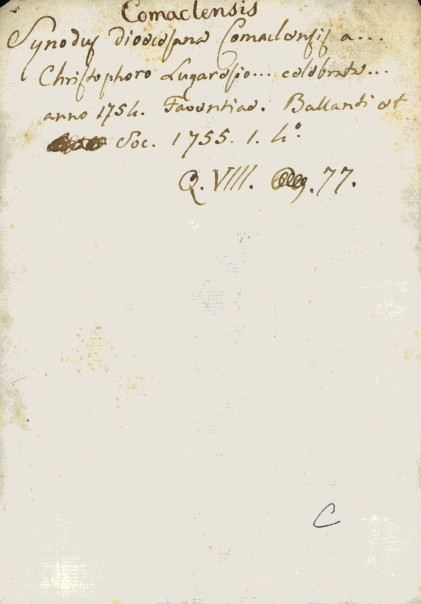 Comaclensis
Synodus dioecesana Comaclensis a...
Christophoro Lugaresio... celebrata...
anno 1754. Faventiae. Ballanti et
Soc. 1755. 1. 4°.
Q. VIII. 77.
C